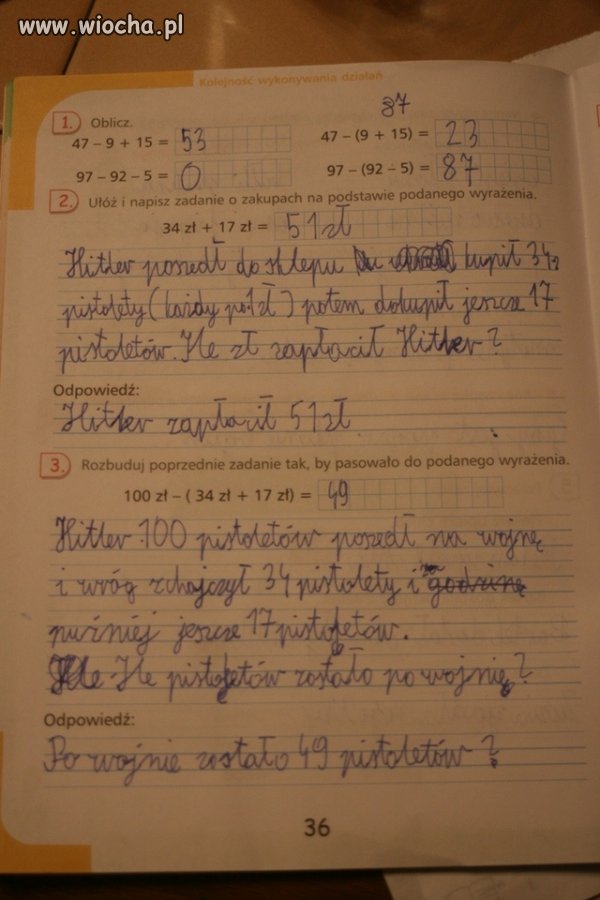 www.wiocha.pl
Kolejność wykonywania działań
1. Oblicz.
87
47 – 9 + 15 = 53 47 – (9 + 15) = 23
97 – 92 – 5 = 0 97 – (92 – 5) = 87
2. Ułóż i napisz zadanie o zakupach na podstawie podanego wyrażenia.
34 zł + 17 zł = 51 zł
Hitler poszedł do sklepu kupił 34
pistolety (każdy po 1 zł) potem dokupił jeszcze 17
pistoletów. Ile zł zapłacił Hitler?
Odpowiedź:
Hitler zapłacił 51 zł
3. Rozbuduj poprzednie zadanie tak, by pasowało do podanego wyrażenia.
100 zł – ( 34 zł + 17 zł) = 49
Hitler 100 pistoletów poszedł na wojnę
i wróg zhajczył 34 pistolety i godzinę
puźniej jeszcze 17 pistoletów.
Ile pistoletów zostało po wojnie?
Odpowiedź:
Po wojnie zostało 49 pistoletów?
36